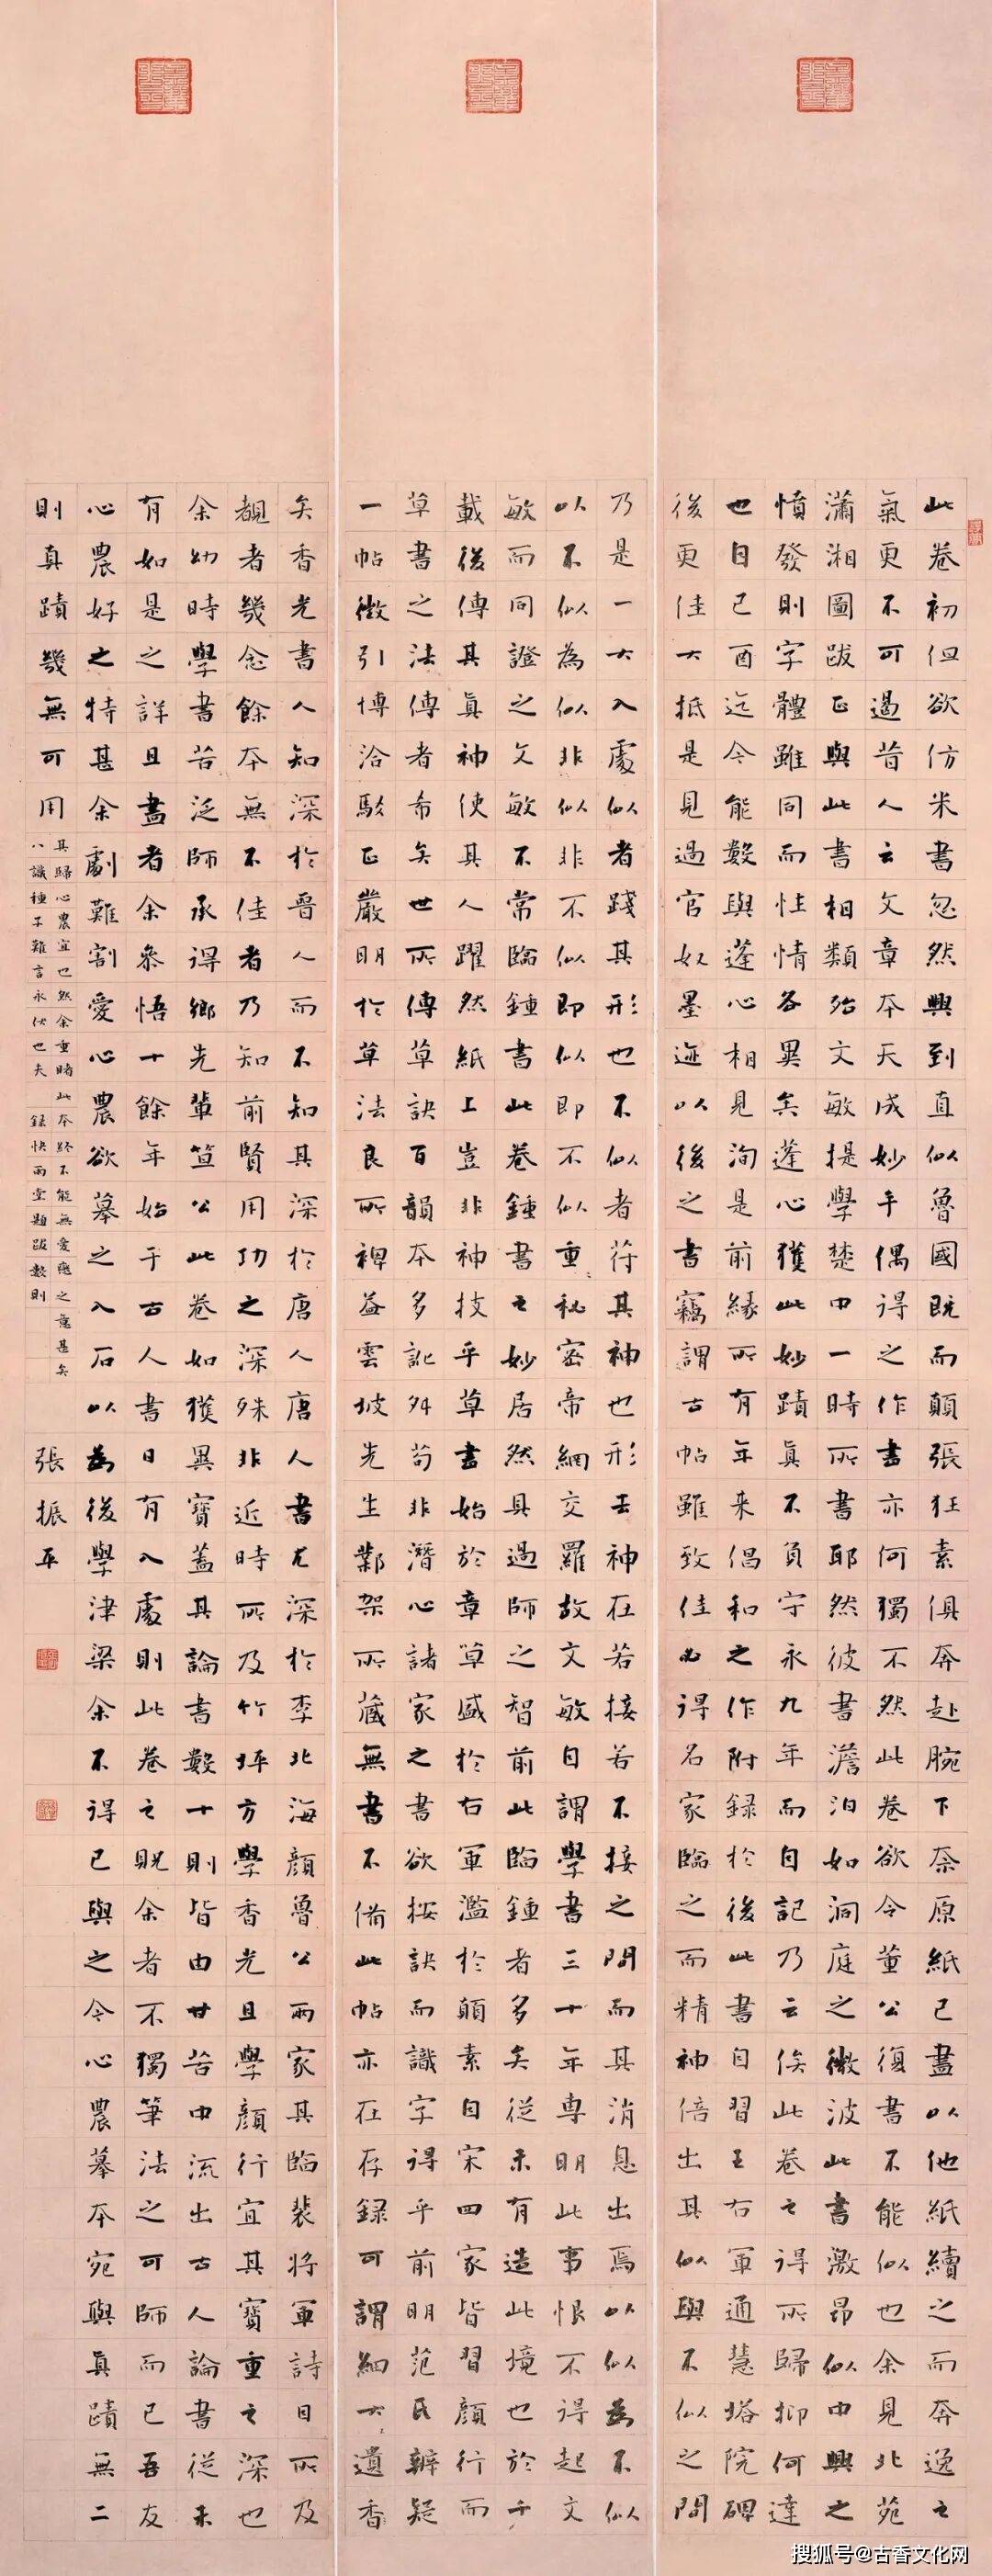 此卷初但欲仿米書忽然興到直似魯國既而顛張狂素俱奔赴腕下奈原紙已盡以他紙續之而奔逸之
氣更不可遏昔人云文章本天成妙手偶得之作書亦何獨不然此卷欲令董公復書不能似也余見北苑
瀟湘圖跋正與此書相類殆文敏提學楚中一時所書耶然彼書澹泊如洞庭之微波此書激昂似中興之
憤發則字體雖同而性情各異矣蓬心獲此妙蹟真不負守永九年而自記乃云俟此卷之得所歸抑何達
也自己酉迄今能數與蓬心相見洵是前緣所有年来倡和之作附録於後此書自習王右軍通慧塔院碑
後更佳大抵是見過官奴墨迹以後之書竊謂古帖雖致佳必得名家臨之而精神倍出其似與不似之間
乃是一大入處似者踐其形也不似者苻其神也形去神在若接若不接之間而其消息出焉以似為不似
以不似為似非似非不似即似即不似重秘密帝網交羅故文敏自謂學書三十年専明此事恨不得起文
敏而同證之文敏不常臨鍾書此卷鍾書之妙居然具過師之智前此臨鍾者多矣從未有造此境也於千
載後傳其真神使其人躍然紙上豈非神技乎草書始於章草盛於右軍濫於顛素自宋四家皆習顏行而
草書之法傳者希矣世所傳草訣百韻本多訛舛苟非潛心諸家之書欲按訣而識字得乎前明范氏辨疑
一帖徵引博洽駁正嚴明於草法良所裨益雲坡先生鄴架所蔵無書不備此帖亦在存録可謂細大遺香
矣香光書人知深於晉人而不知其深於唐人唐人書尤深於李北海顏魯公兩家其臨裴将軍詩日所及
覩者幾念餘本無不佳者乃知前賢用功之深殊非近時所及竹坪方學香光且學顏行宜其寶重之深也
余幼時學書苦泛師承得鄉先輩笪公此卷如獲異寶蓋其論書數十則皆由甘苦中流出古人論書從未
有如是之詳且盡者余參悟十餘年始于古人書日有入處則此卷之貺余者不獨筆法之可師而已吾友
心農好之特甚余劇難割愛心農欲摹之入石以為後學津梁余不得已與之今心農摹本宛與真蹟無二
則真蹟幾無可用
其歸心農宜也然余重睹此本終不能無愛戀之意甚矣
八識種子難言永伏也夫 録快雨堂題跋數則
張振平
搜狐号@古香文化网